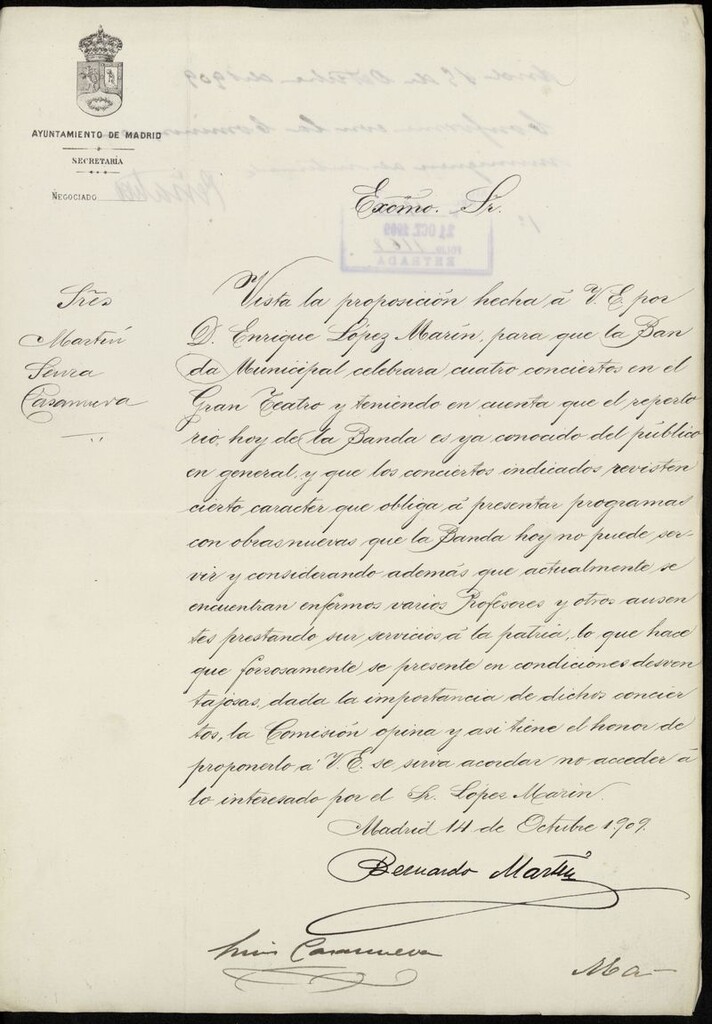 AYUNTAMIENTO DE MADRID
SECRETARÍA
NEGOCIADO
Excmo. Sr.
Sres
Martín
Senra
Casanueva
Vista la proposición hecha á V.E. por
D. Enrique López Marín, para que la Ban
da Municipal celebrara cuatro conciertos en el
Gran Teatro y teniendo en cuenta que el reperto
rio, hoy de la Banda es ya conocido del público
en general, y que los conciertos indicados revisten
cierto caracter que obliga á presentar programas
con obras nuevas que la Banda hoy no puede ser-
vir y considerando además que actualmente se
encuentran enfermos varios Profesores y otros ausen
tes prestando sus servicios á la patria, lo que hace
que forzosamente se presente en condiciones desven
tajosas, dada la importancia de dichos concier
tos, la Comisión opina y asi tiene el honor de
proponerlo á V.E. se sirva acordar no acceder á
lo interesado por el Sr. López Marin.
Madrid 14 de Octubre 1909.
Bernardo Martín
Luis Casanueva